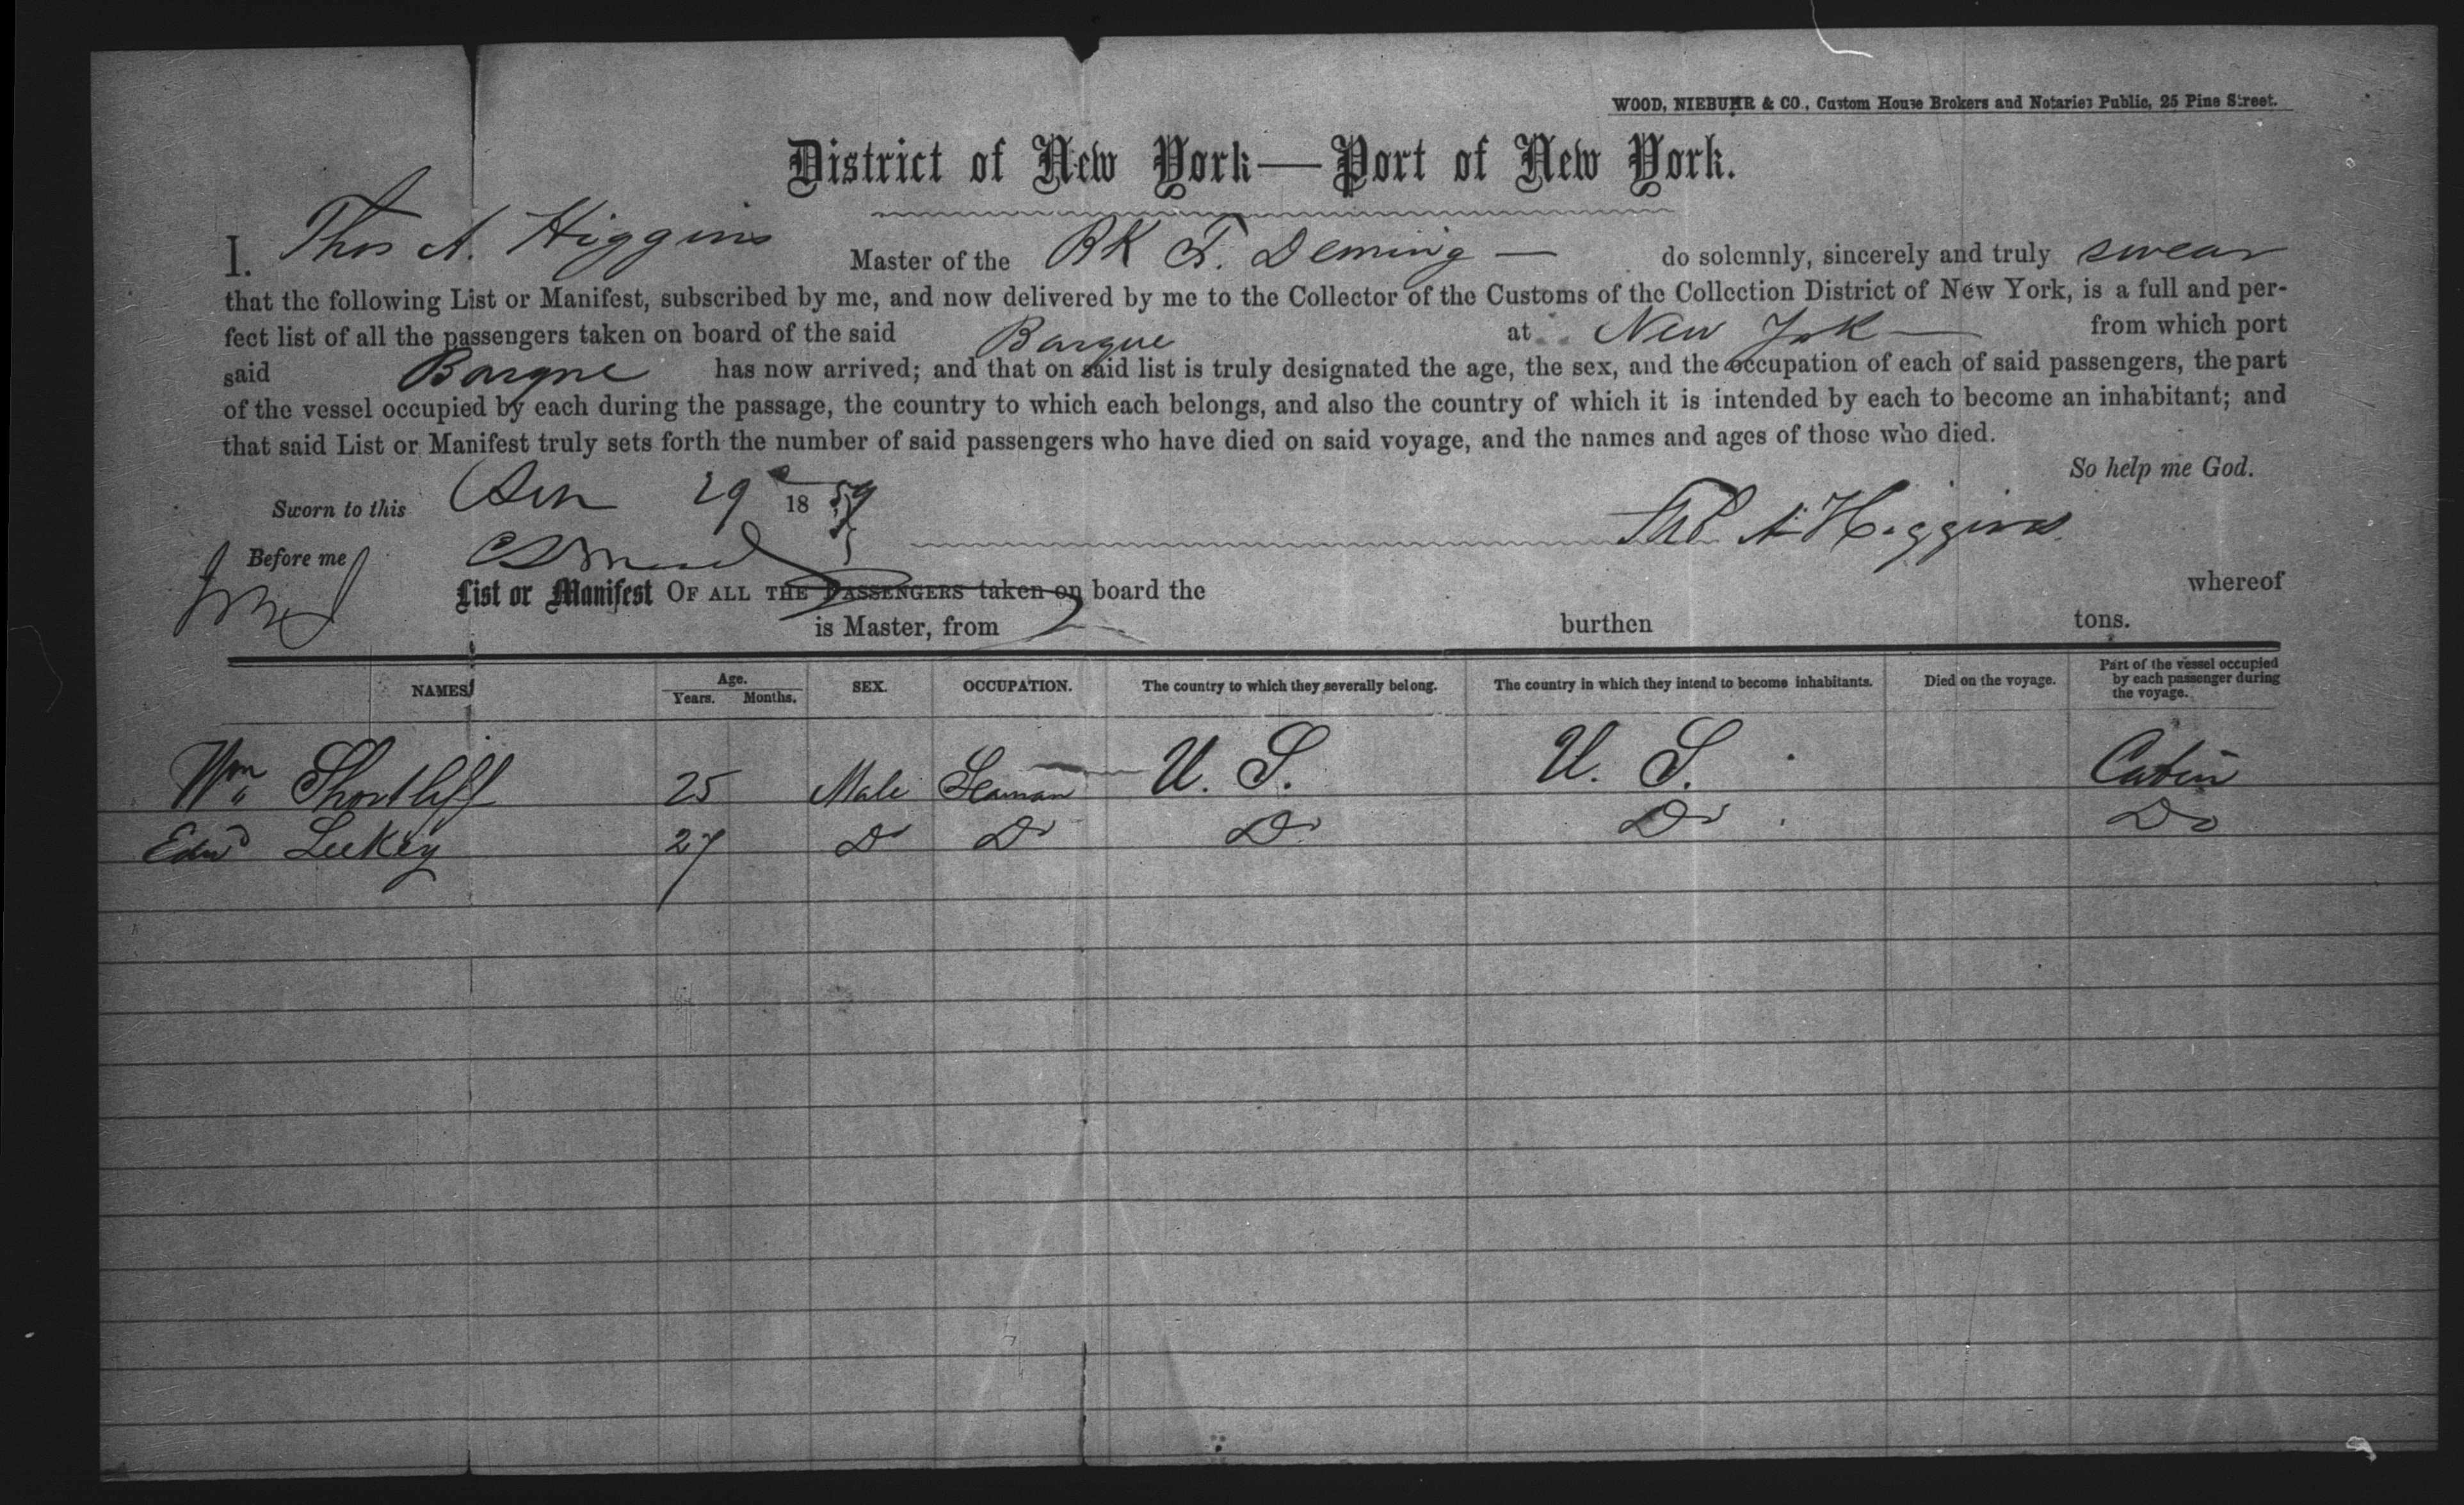 WOOD, NIEBUHR & CO., Custom House Brokers and Notaries Public, 25 Pine Street.
District of New York—Port of New York.
I, Thos A. Higgins Master of the BK F. Deming — do solemnly, sincerely and truly swear
that the following List or Manifest, subscribed by me, and now delivered by me to the Collector of the Customs of the Collection District of New York, is a full and per-
fect list of all the passengers taken on board of the said Barque at New York from which port
said Barque has now arrived; and that on said list is truly designated the age, the sex, and the occupation of each of said passengers, the part
of the vessel occupied by each during the passage, the country to which each belongs, and also the country of which it is intended by each to become an inhabitant; and
that said List or Manifest truly sets forth the number of said passengers who have died on said voyage, and the names and ages of those who died.
So help me God.
Sworn to this 29 1859
Thos A Higgins
Before me
List or Manifest OF ALL THE PASSENGERS taken on board the whereof
is Master, from burthen tons.
NAMES Age. Years. Months. SEX. OCCUPATION. The country to which they severally belong. The country in which they intend to become inhabitants. Died on the voyage. Part of the vessel occupied by each passenger during the voyage.
Wm Shortliff 25 Male Seaman U. S. U. S. Cabin
Edwd Luekey 27 Do Do Do Do Do